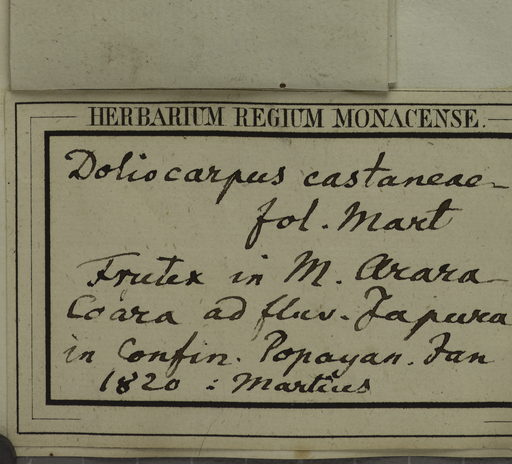 HERBARIUM REGIUM MONACENSE.
Doliocarpus castaneae-
fol. Mart
Frutex in M. Arara-
Coara ad fluv. Japura
in Confin. Popayan. Jan
1820 : Martius